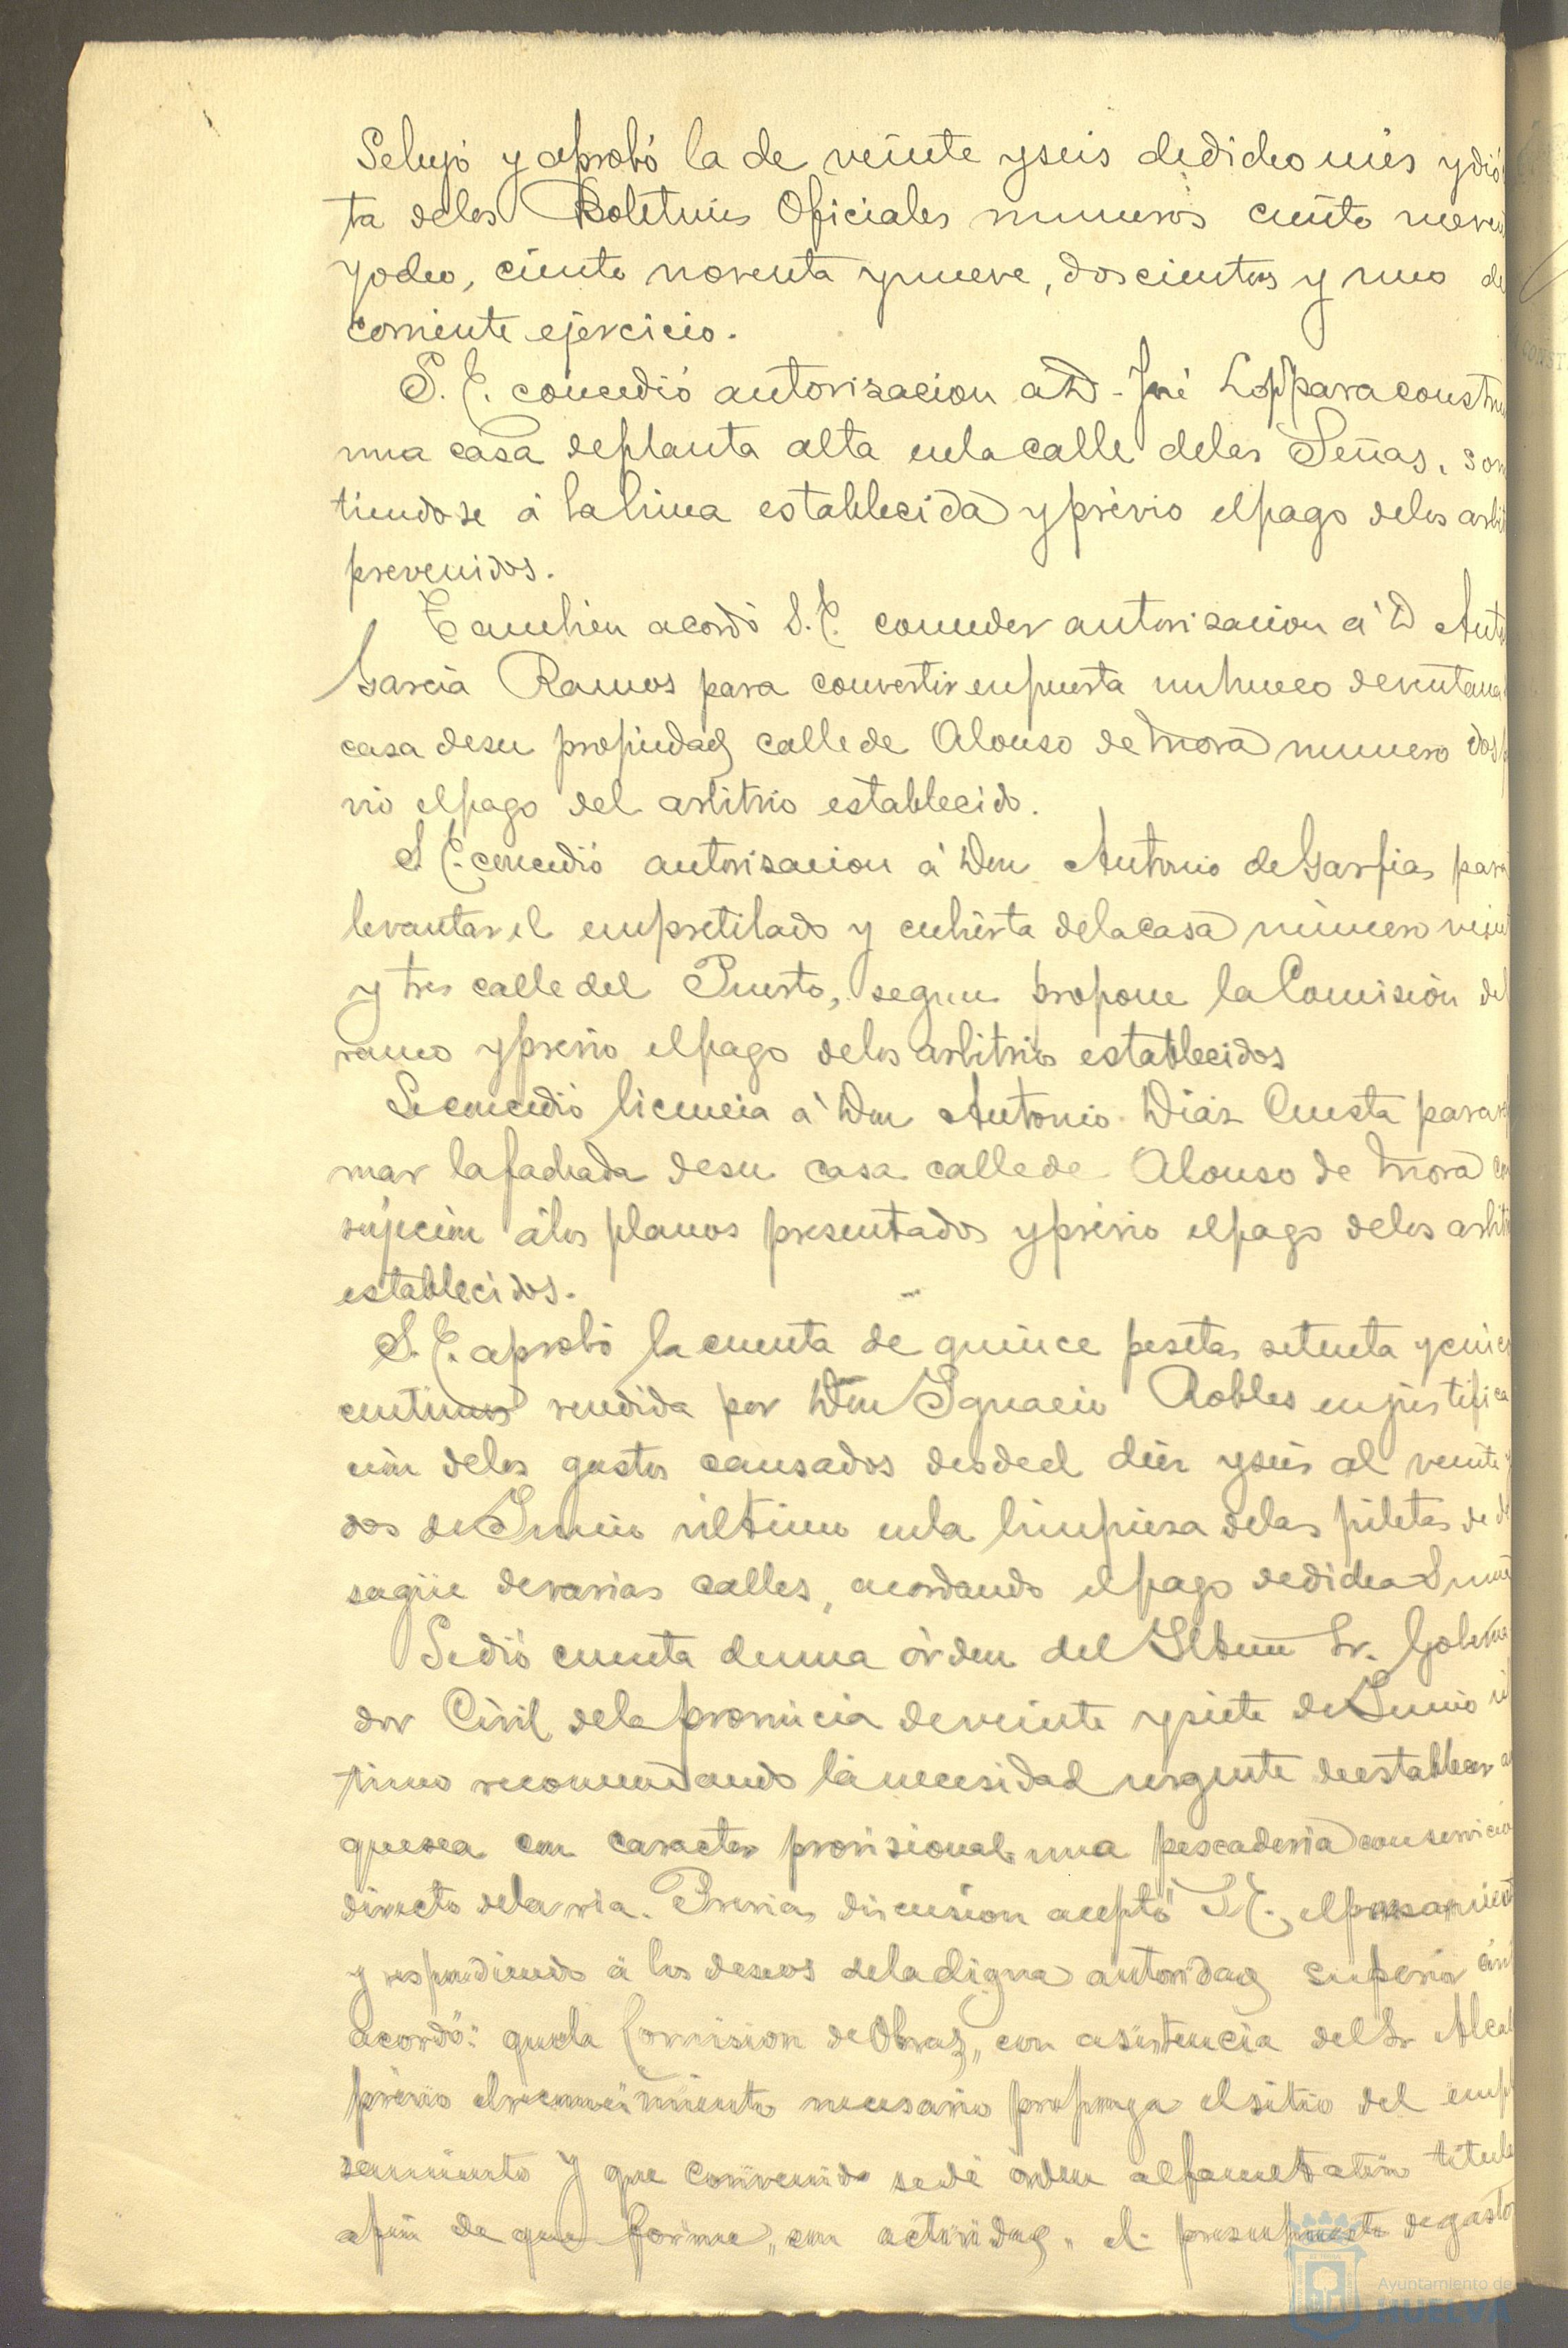 Se leyó y aprobó la de veinte y seis de dicho mes y dió
ta de los Boletines Oficiales numeros ciento noven
y ocho, ciento noventa y nueve, doscientos y uno de
corriente ejercicio.
S. E. concedió autorizacion a D. José Lop para constru
una casa de planta alta en la calle de las Señas, som
tiendose á la linea establecida y prévio el pago de los arbi
prevenidos.
Tambien acordó S. E. conceder autorizacion á D Anto
García Ramos para convertir en puerta un hueco de ventana
casa de su propiedad calle de Alonso de Mora numero dos p
vio el pago del arbitrio establecido.
S E. concedió autorizacion á Don Antonio de Garfias para
levantar el empretilado y cubierta de la casa número veint
y tres calle del Puerto, segun propone la Comisión del
ramo y prévio el pago de los arbitrios establecidos
Se concedió licencia á Don Antonio Diaz Cuesta para
mar la fachada de su casa calle de Alonso de Mora con
sujecion á los planos presentados y prévio el pago de los arbit
establecidos.
S. E. aprobó la cuenta de quince pesetas setenta y cinco
centimos rendida por Don Ignacio Robles en justifica
cion de los gastos causados desde el diez y seis al veinte y
dos de Junio último en la limpieza de las piletas de de
sagüe de varias calles, acordando el pago de dicha Suma
Se dió cuenta de una órden del Iltmo Sr. Goberna
dor Civil de la provincia de veinte y siete de Junio úl
timo recomendando la necesidad urgente de establecer a
que sea con caracter provisional una pescaderia con servicio
directo de la ria. Previa discusion aceptó S. E. el pensamient
y respondiendo á los deseos de la digna autoridad superior civi
acordó: que la Comision de Obras, con asistencia del Sr Alcal
prévio el reconocimiento necesario proponga el sitio del empl
zamiento y que convenido se dé órden al facultativo titula
a fin de que forme, con actividad, el presupuesto de gastos
Ayuntamiento de
HUELVA